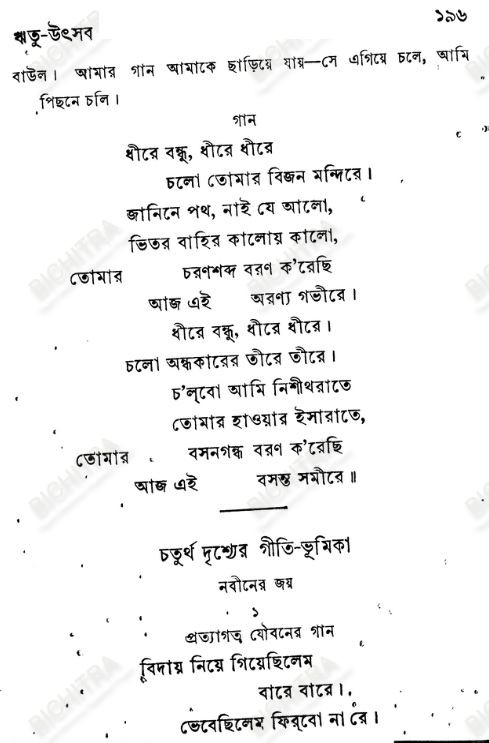 ১৯৬
ঋতু-উৎসব
বাউল। আমার গান আমাকে ছাড়িয়ে যায়—সে এগিয়ে চলে, আমি
পিছনে চলি।
গান
ধীরে বন্ধু, ধীরে ধীরে
চলো তোমার বিজন মন্দিরে।
জানিনে পথ, নাই যে আলো,
ভিতর বাহির কালোয় কালো,
তোমার চরণশব্দ বরণ ক'রেছি
আজ এই অরণ্য গভীরে।
ধীরে বন্ধু, ধীরে ধীরে।
চলো অন্ধকারের তীরে তীরে।
চ'ল্‌বো আমি নিশীথরাতে
তোমার হাওয়ার ইসারাতে,
তোমার বসনগন্ধ বরণ ক'রেছি
আজ এই বসন্ত সমীরে॥
চতুর্থ দৃশ্যের গীতি-ভূমিকা
নবীনের জয়
১
প্রত্যাগত যৌবনের গান
বিদায় নিয়ে গিয়েছিলেম
বারে বারে।
ভেবেছিলেম ফির্‌বো না রে।
BICHITRA
BICHITRA
BICHITRA
BICHITRA